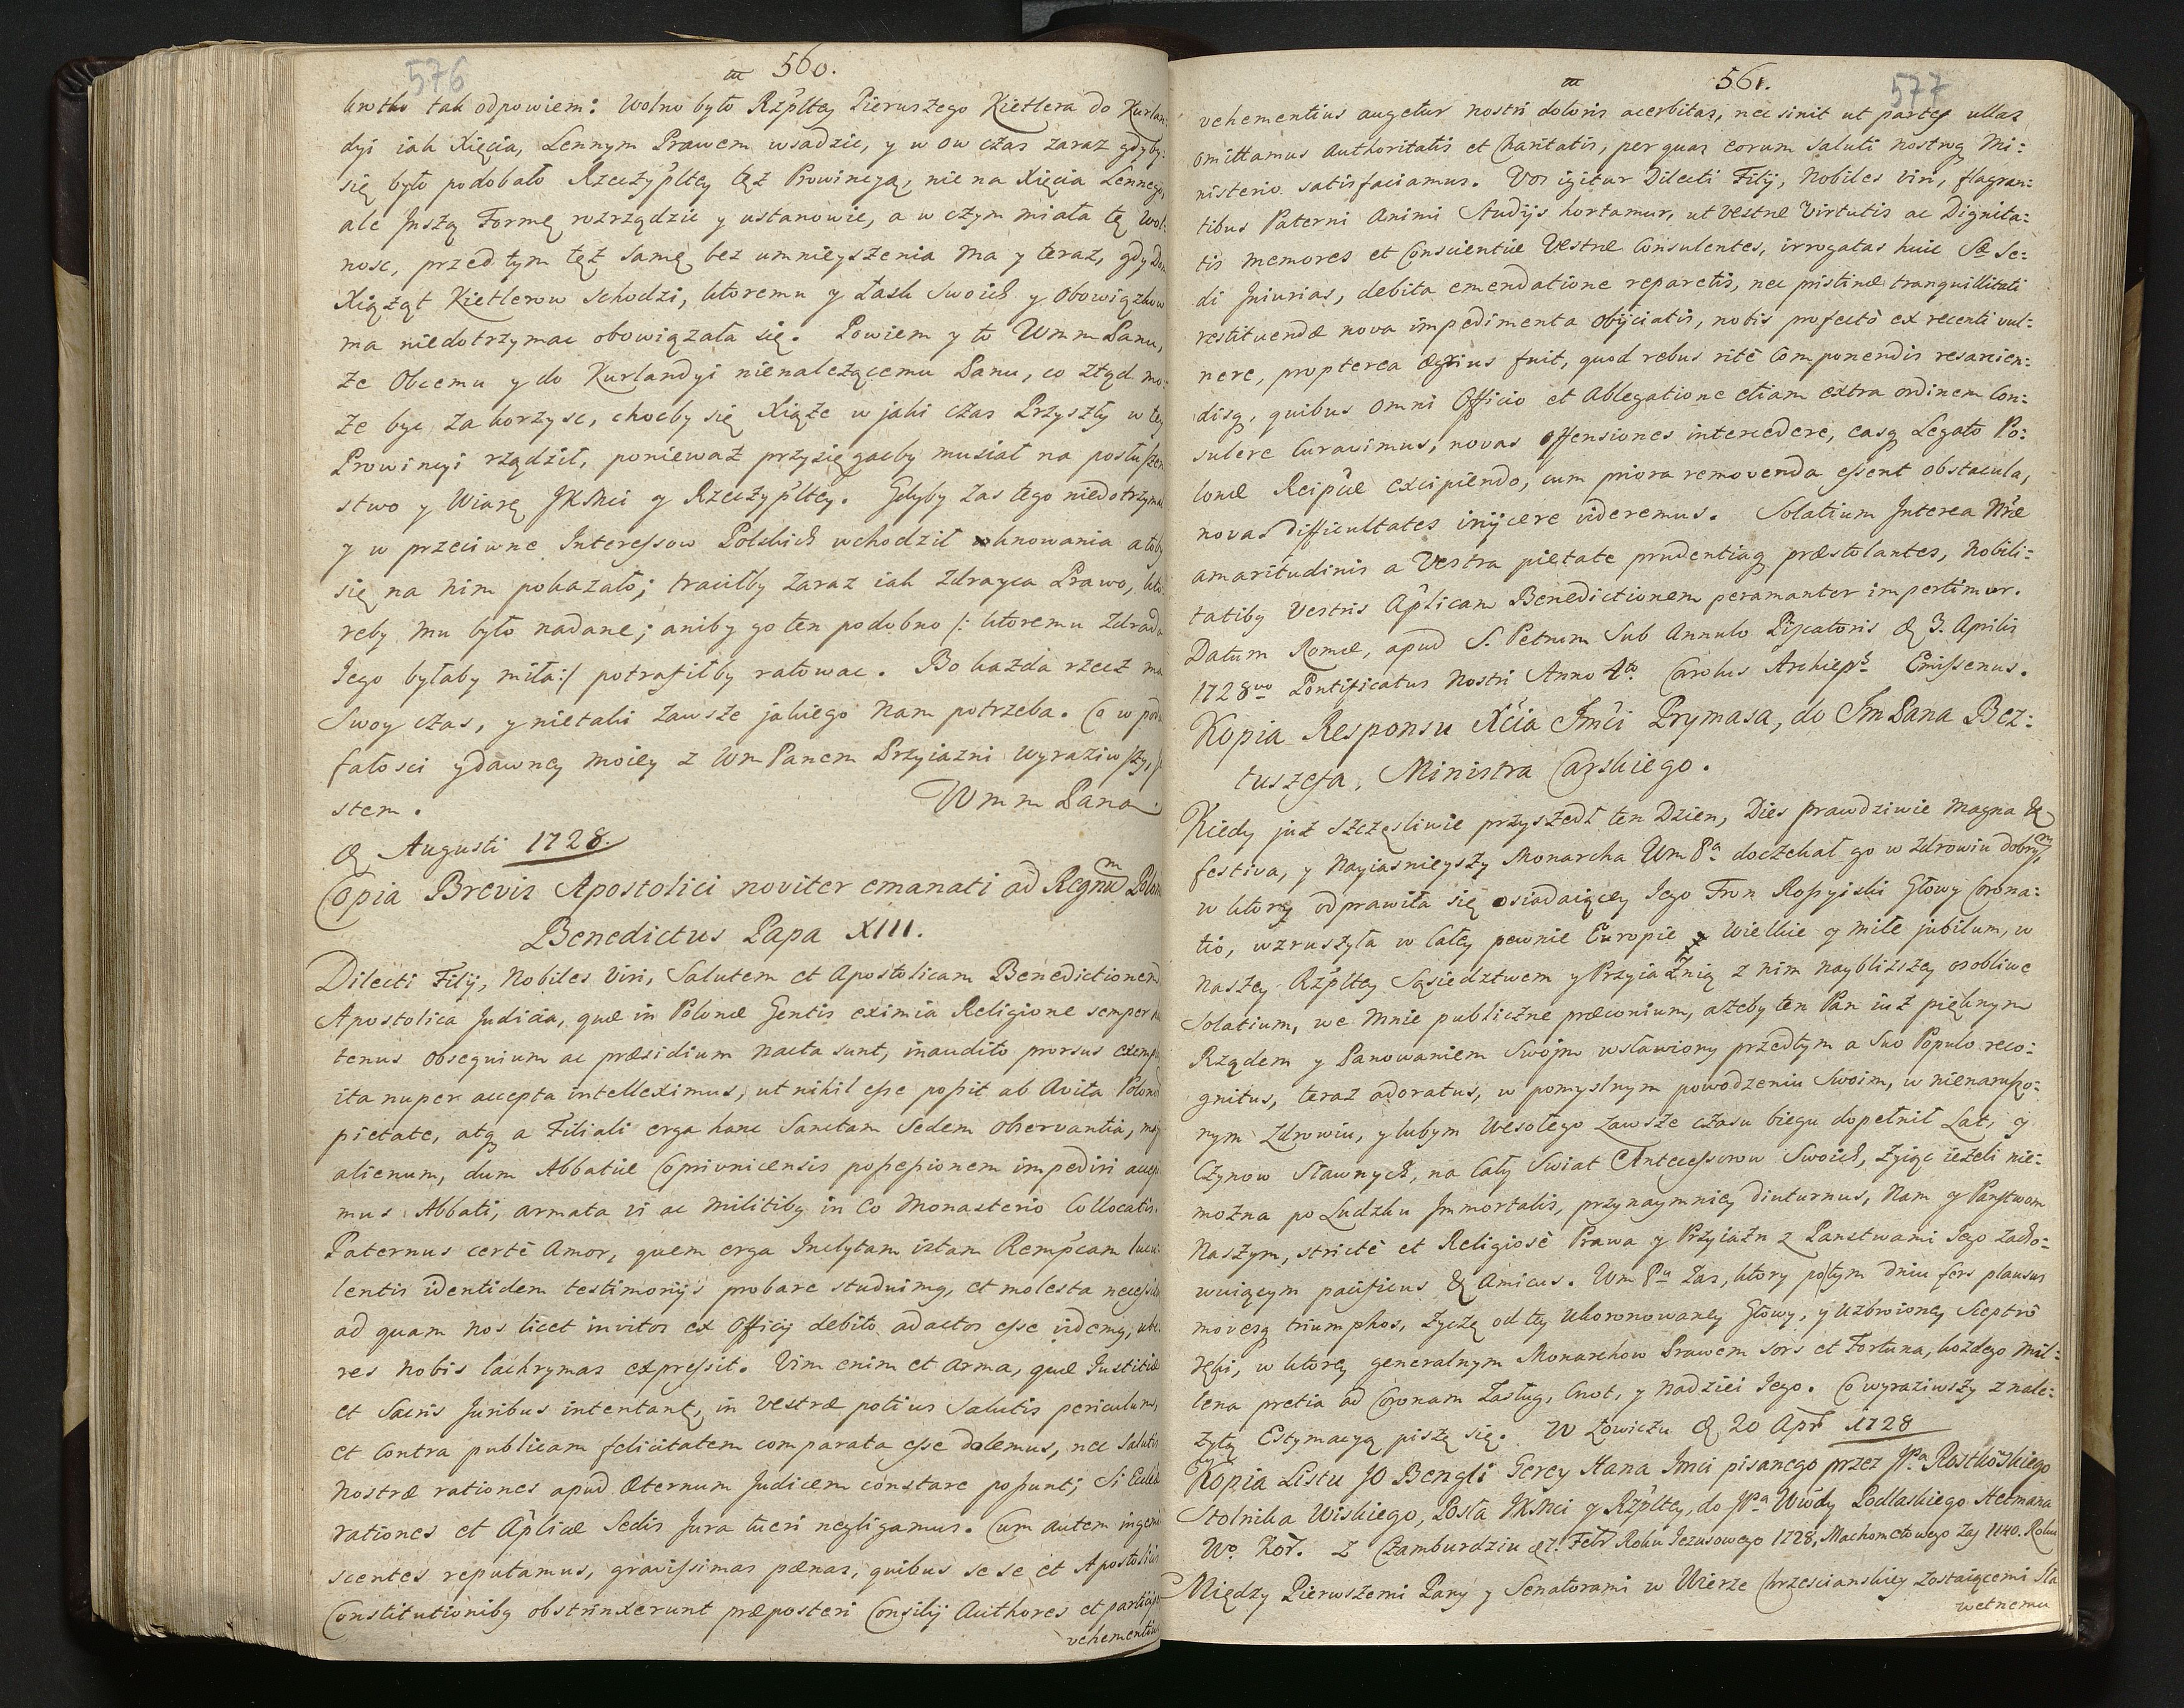 576
560.
krotko tak odpowiem: Wolno było Rzpltey Pierwszego Kietlera do Kurlan:
dyi iak Xięcia, Lennym Prawem wsadzic, y w ow czas zaraz gdyby:
się było podobało Rzeczypltey tęż Prowincyą, nie na Xięcia Lennego,
ale Inszą Formę rozrządzic y ustanowic, a w czym miała tę wol:
nosc, przed tym tęż samę bez umnieyszenia ma y teraz, gdy Dom
Xiążąt Kietlerow schodzi, ktoremu y Łask Swoich y Obowiązkow
ma niedotrzymac obowiązała się. Powiem y to Wmm Panu,
że Obcemu y do Kurlandyi nienależącemu Panu, co ztąd mo:
że byc za korzysc, chocby się Xiąże w jaki czas Przyszły w tey
Prowincyi rządził, ponieważ przysięgacby musiał na posłuszen
stwo y Wiarę JKMci y Rzeczypltey. Gdyby zas tego niedotrzymał
y w przeciwne Interessow Polskich wchodził knowania a toby
się na nim pokazało; traciłby zaraz iak Zdrayca Prawo, kto:
reby mu było nadane; aniby go ten podobno /: ktoremu Zdrada
Jego byłaby miła:/ potrafiłby ratowac. Bo każda rzecz ma
Swoy czas, y nietaki zawsze jakiego Nam potrzeba. Co w pou
fałosci y dawney moiey z Wm Panem Przyiazni wyraziwszy, je
stem. Wmm Pana.
D Augusti 1728.
Copia Brevis Apostolici noviter emanati ad Regnum Polon
Benedictus Papa XIII.
Dilecti Filij, Nobiles Viri, Salutem et Apostolicam Benedictionem
Apostolica Judicia, quæ in Polonæ Gentis eximia Religione semper ha
tenus obsequium ac præsidium nacta sunt, inaudito prorsus exempl
ita nuper accepta intelleximus, ut nihil esse possit ab Avita Polono
pietate, atq a Filiali erga hanc Sanctam Sedem observantia, mag
alienum, dum Abbatiæ Coprivnicensis possessionem impediri accepi
mus Abbati, armata vi ac militibq in Eo Monasterio Collocatis.
Paternus certè Amor, quem erga Inclytam istam Rempcam lucu:
lentis identidem testimonijs probare studuimq, et molesta necessit
ad quam nos licet invitos ex Officij debito adactos esse videmq, ube:
res nobis lachrymas expressit. Vim enim et arma, quæ Justitiæ
et Sacris Juribus intentant, in Vestræ potius Salutis periculum,
et contra publicam felicitatem comparata esse dolemus, nec Salutis
Nostræ rationes apud Æternum Judicem constare possunt; Si Eccle
rationes et Aplicæ Sedis Jura tueri negligamus. Cum autem ingemi
scentes reputamus, gravissimas pœnas, quibus se se et Apostolicis
Constitutionibq obstrinxerunt præposteri Consilij Authores et particip
vehementiu
577
561.
vehementius augetur nostri doloris acerbitas, nec sinit ut partes ullas
omittamus Authoritatis et Charitatis, per quas eorum Saluti nostroq Mi:
nisterio satisfaciamus. Vos igitur Dilecti Filij, Nobiles Viri, flagran:
tibus Paterni Animi Studijs hortamur, ut Vestræ Virtutis ac Dignita:
tis memores et Conscientiæ Vestræ Consulentes, irrogatas huic Sæ Se:
di Iniurias, debita emendatione reparetis, nec pristinæ tranquillitati
restituendæ nova impedimenta obijciatis, nobis profectò ex recenti vul:
nere, propterea ægrius fuit, quod rebus ritè componendis resarcien:
disq, quibus omni Officio et Ablegatione etiam extra ordinem Con:
sulere Curavimus, novas offensiones intercedere, easq Legato Po:
lonæ Reipcæ excipiendo, cum priora removenda essent obstacula,
novas difficultates injicere videremus. Solatium Interea Nræ
amaritudinis a Vestra pietate prudentiaq præstolantes, Nobili:
tatibq Vestris Aplicam Benedictionem peramanter impertimur.
Datum Romæ, apud S. Petrum Sub Annulo Piscatoris D 3. Aprilis
1728vo Pontificatus Nostri Anno 4to. Carolus Archieps Emissenus.
Kopia Responsu Xcia Jmci Prymasa, do Jm Pana Bez:
tuszefa, Ministra Carskiego.
Kiedy już szczęsliwie przyszedł ten Dzien, Dies prawdziwie magna &
festiva, y Nayiasnieyszy Monarcha Wm Pa doczekał go w zdrowiu dobrym,
w ktory odprawiła się osiadaiącey Jego Tron Rossyiski Głowy Corona:
tio, wzruszyła w całey pewnie Europie Wielkie y miłe jubilum, w
naszey Rzpltey Sąsiedztwem y Przyiaźnią z nim naybliższey osobliwe
Solatium, we mnie publiczne præconium, ażeby ten Pan iuż pięknym
Rządem y Panowaniem Swojm wsławiony przedtym a Suo Populo reco:
gnitus, teraz adoratus, w pomyslnym powodzeniu Swoim, w nienaruszo:
nym Zdrowiu, y lubym Wesołego zawsze czasu biegu dopełnił Lat, y
Czynow Sławnych, na cały Swiat Antecessorow Swoich, życząc ieżeli nie:
można po Ludzku Immortalis, przynaymniey diuturnus, Nam y Panstwom
Naszym, strictè et Religiosè Prawa y Przyiaźn z Panstwami Jego zacho:
wuiącym pacificus & Amicus. Wm Pu zas, ktory potym dniu fers plausus
movesq triumphos, życzę od tey Ukoronowaney Głowy, y uzbroioney Sceptrô
ręki, w ktorey generalnym Monarchow Prawem Sors et Fortuna, każdego mil:
lena pretia ad Coronam Zasług, Cnot, y Nadziei Jego. Co wyraziwszy z nale:
żytą Estymacyą piszę się. W Łowiczu D 20 Apr 1728
Kopia Listu JO Bengli Gerey Hana Jmci pisanego przez JPa Rostkoskiego
Stolnika Wiskiego, Posła JKMci y Rzpltey, do JPa Wdy Podlaskiego Hetmana
Wo. Kor. z Czamburdziu 7. Febr Roku Jezusowego 1728, Machometowego zas 1140. Roku
Między Pierwszemi Pany y Senatorami w Wierze Chrzescianskiey zostaiącemi Sła
wetnemu